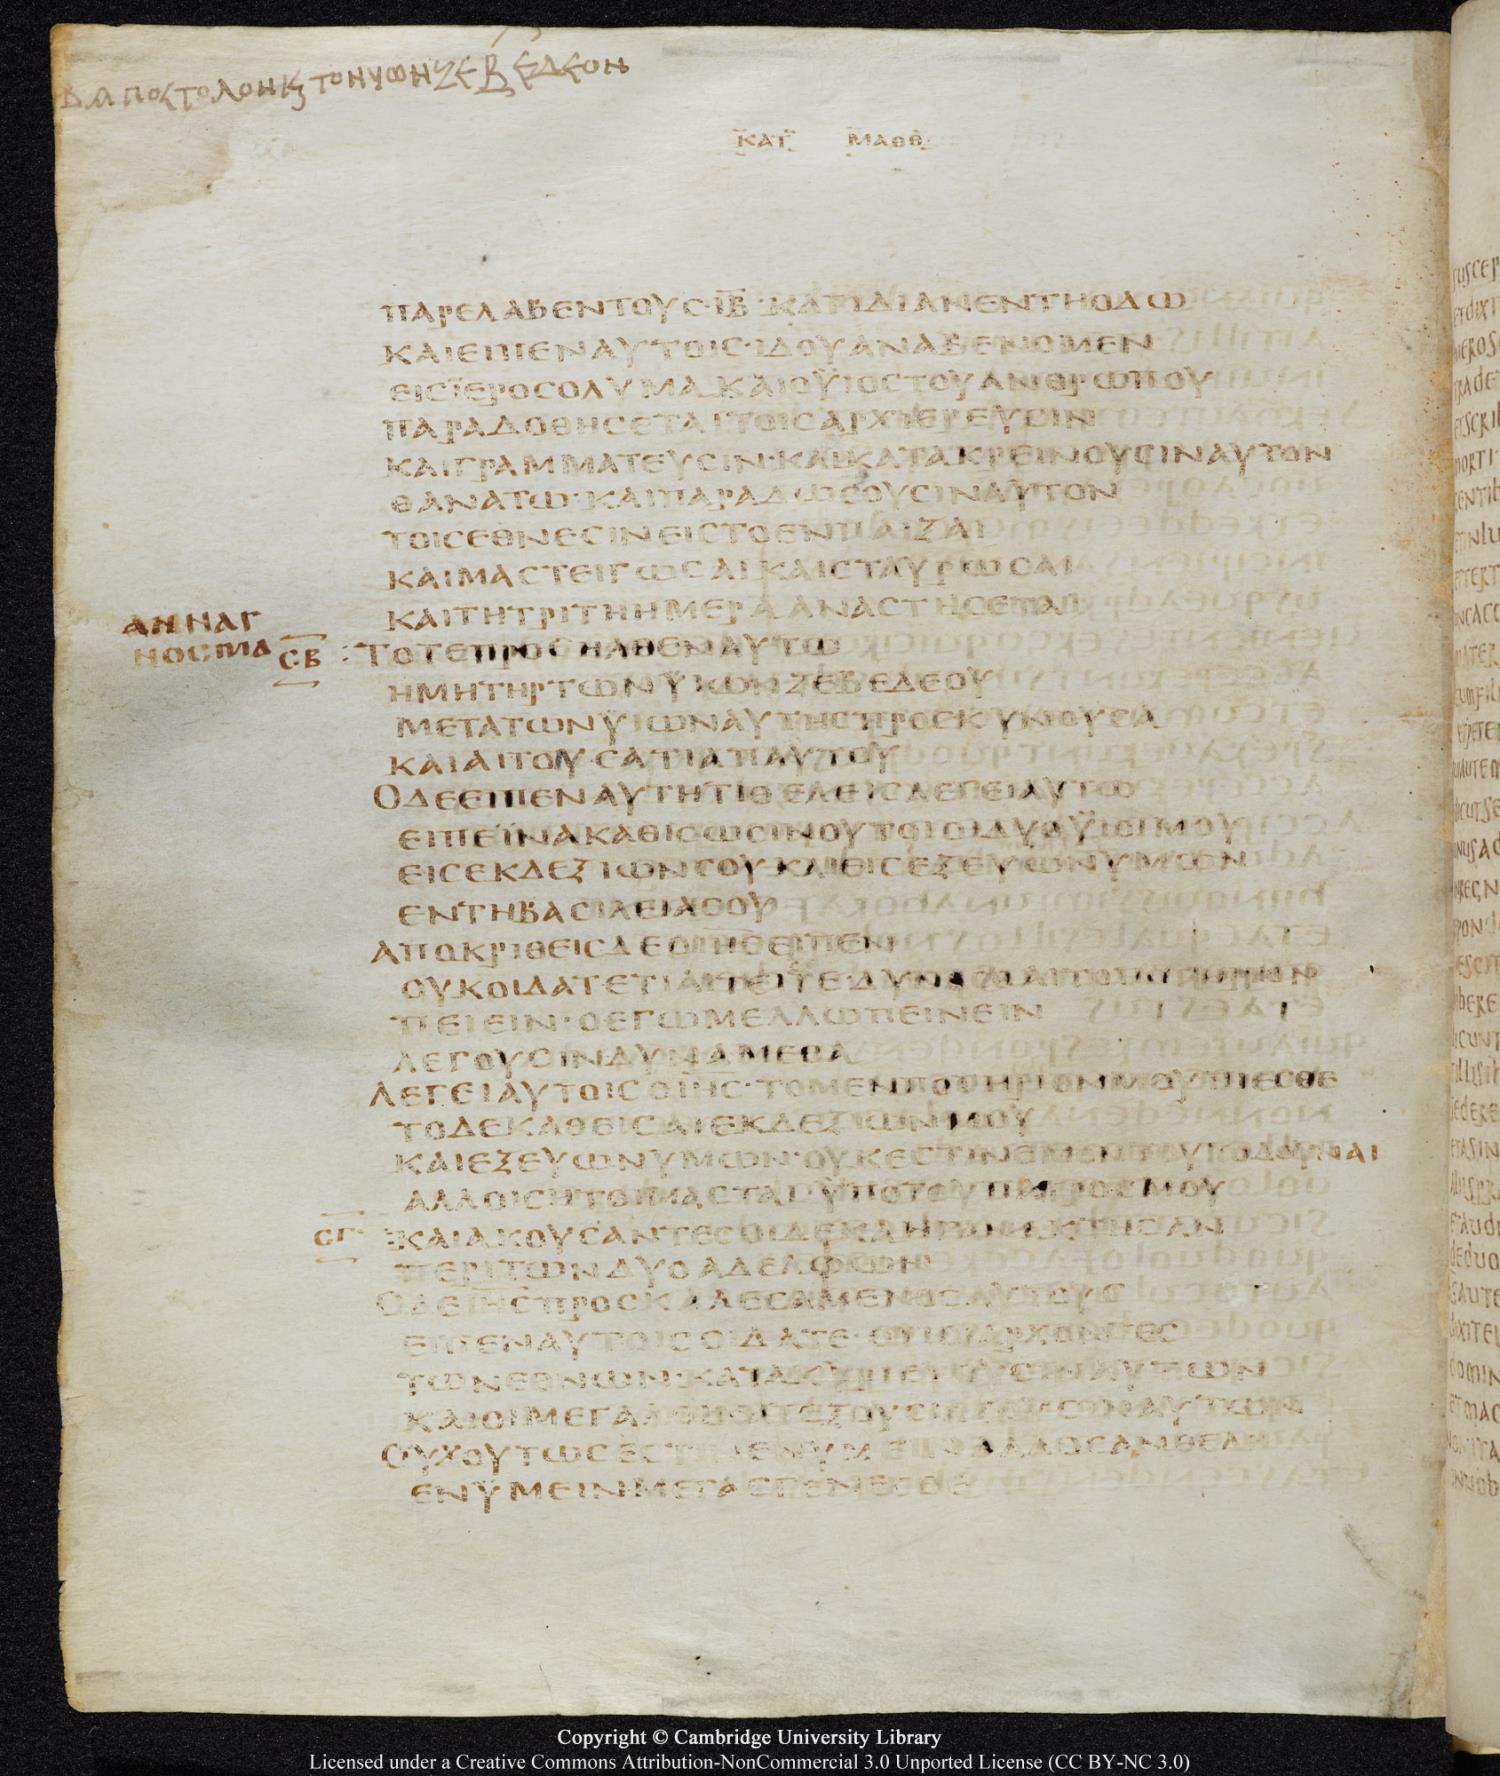 ΑΠΟϹΤΟΛΟΝ Κ ΤΟΝ ΥΩΝ ΖΕΒΕΔΕΟΝ
ΚΑΤ ΜΑΘΘ
ΠΑΡΕΛΑΒΕΝΤΟΥϹ·ΙΒ·ΚΑΤΙΔΙΑΝΕΝΤΗΟΔΩ
ΚΑΙΕΙΠΕΝΑΥΤΟΙϹ·ΙΔΟΥΑΝΑΒΕΝΟΜΕΝ
ΕΙϹΪΕΡΟϹΟΛΥΜΑ ΚΑΙΟΫΙΟϹΤΟΥΑΝΘΡΩΠΟΥ
ΠΑΡΑΔΟΘΗϹΕΤΑΙΤΟΙϹΑΡΧΙΕΡΕΥϹΙΝ
ΚΑΙΓΡΑΜΜΑΤΕΥϹΙΝ·ΚΑΙΚΑΤΑΚΡΕΙΝΟΥϹΙΝΑΥΤΟΝ
ΘΑΝΑΤΩ·ΚΑΙΠΑΡΑΔΩϹΟΥϹΙΝΑΥΤΟΝ
ΤΟΙϹΕΘΝΕϹΙΝΕΙϹΤΟΕΝΠΑΙΖΑΙ
ΚΑΙΜΑϹΤΕΙΓΩϹΑΙ ΚΑΙϹΤΑΥΡΩϹΑΙ
ΚΑΙΤΗΤΡΙΤΗΗΜΕΡΑ ΑΝΑϹΤΗϹΕΤΑΙ
ΑΝΝΑΓ
ΝΟϹΜΑ
ϹΒ ΤΟΤΕΠΡΟϹΗΛΘΕΝΑΥΤΩ
ΗΜΗΤΗΡΤΩΝΫΙΩΝΖΕΒΕΔΕΟΥ
ΜΕΤΑΤΩΝΫΙΩΝΑΥΤΗϹΠΡΟϹΚΥΝΟΥϹΑ
ΚΑΙΑΙΤΟΥϹΑΤΙΑΠΑΥΤΟΥ
ΟΔΕΕΙΠΕΝΑΥΤΗΤΙΘΕΛΕΙϹΛΕΓΕΙΑΥΤΩ
ΕΙΠΕΪΝΑΚΑΘΙϹΩϹΙΝΟΥΤΟΙΟΙΔΥΟΫΙΟΙΜΟΥ
ΕΙϹΕΚΔΕΞΙΩΝϹΟΥ·ΚΑΙΕΙϹΕΞΕΥΩΝΥΜΩΝ
ΕΝΤΗΒΑϹΙΛΕΙΑϹΟΥ
ΑΠΟΚΡΙΘΕΙϹΔΕΟΙΗϹΕΙΠΕΝ
ΟΥΚΟΙΔΑΤΕΤΙΑΙΤΕΙϹΘΕ·ΔΥΝΑϹΘΑΙΤΟΠΟΤΗΡΙΟΝ
ΠΕΙΕΙΝ·ΟΕΓΩΜΕΛΛΩΠΕΙΝΕΙΝ
ΛΕΓΟΥϹΙΝΔΥΝΑΜΕΘΑ
ΛΕΓΕΙΑΥΤΟΙϹΟΙΗϹ·ΤΟΜΕΝΠΟΤΗΡΙΟΝΜΟΥΠΙΕϹΘΕ
ΤΟΔΕΚΑΘΕΙϹΑΙΕΚΔΕΞΙΩΝΜΟΥ
ΚΑΙΕΞΕΥΩΝΥΜΩΝ·ΟΥΚΕϹΤΙΝΕΜΟΝΤΟΥΤΟΔΟΥΝΑΙ
ΑΛΛΟΙϹΗΤΟΙΜΑϹΤΑΙ·ΫΠΟΤΟΥΠΑΤΡΟϹΜΟΥ
ϹΓ ΚΑΙΑΚΟΥϹΑΝΤΕϹΟΙΔΕΚΑΗΓΑΝΑΚΤΗϹΑΝ
ΠΕΡΙΤΩΝΔΥΟΑΔΕΛΦΩΝ
ΟΔΕΙΗϹΠΡΟϹΚΑΛΕϹΑΜΕΝΟϹΑΥΤΟΥϹ
ΕΙΠΕΝΑΥΤΟΙϹΟΙΔΑΤΕ·ΟΤΙΟΙΑΡΧΟΝΤΕϹ
ΤΩΝΕΘΝΩΝ·ΚΑΤΑΚΥΡΙΕΥϹΟΥϹΙΝΑΥΤΩΝ
ΚΑΙΟΙΜΕΓΑΛΟΙΚΑΤΕΞΟΥϹΙΑΖΟΥϹΙΝΑΥΤΩΝ
ΟΥΧΟΥΤΩϹΕϹΤΙΝΕΝΫΜΕΙΝ ΑΛΛΟϹΑΝΘΕΛΗ
ΕΝΫΜΕΙΝΜΕΓΑϹΓΕΝΕϹΘΕ
Copyright © Cambridge University Library
Licensed under a Creative Commons Attribution-NonCommercial 3.0 Unported License (CC BY-NC 3.0)